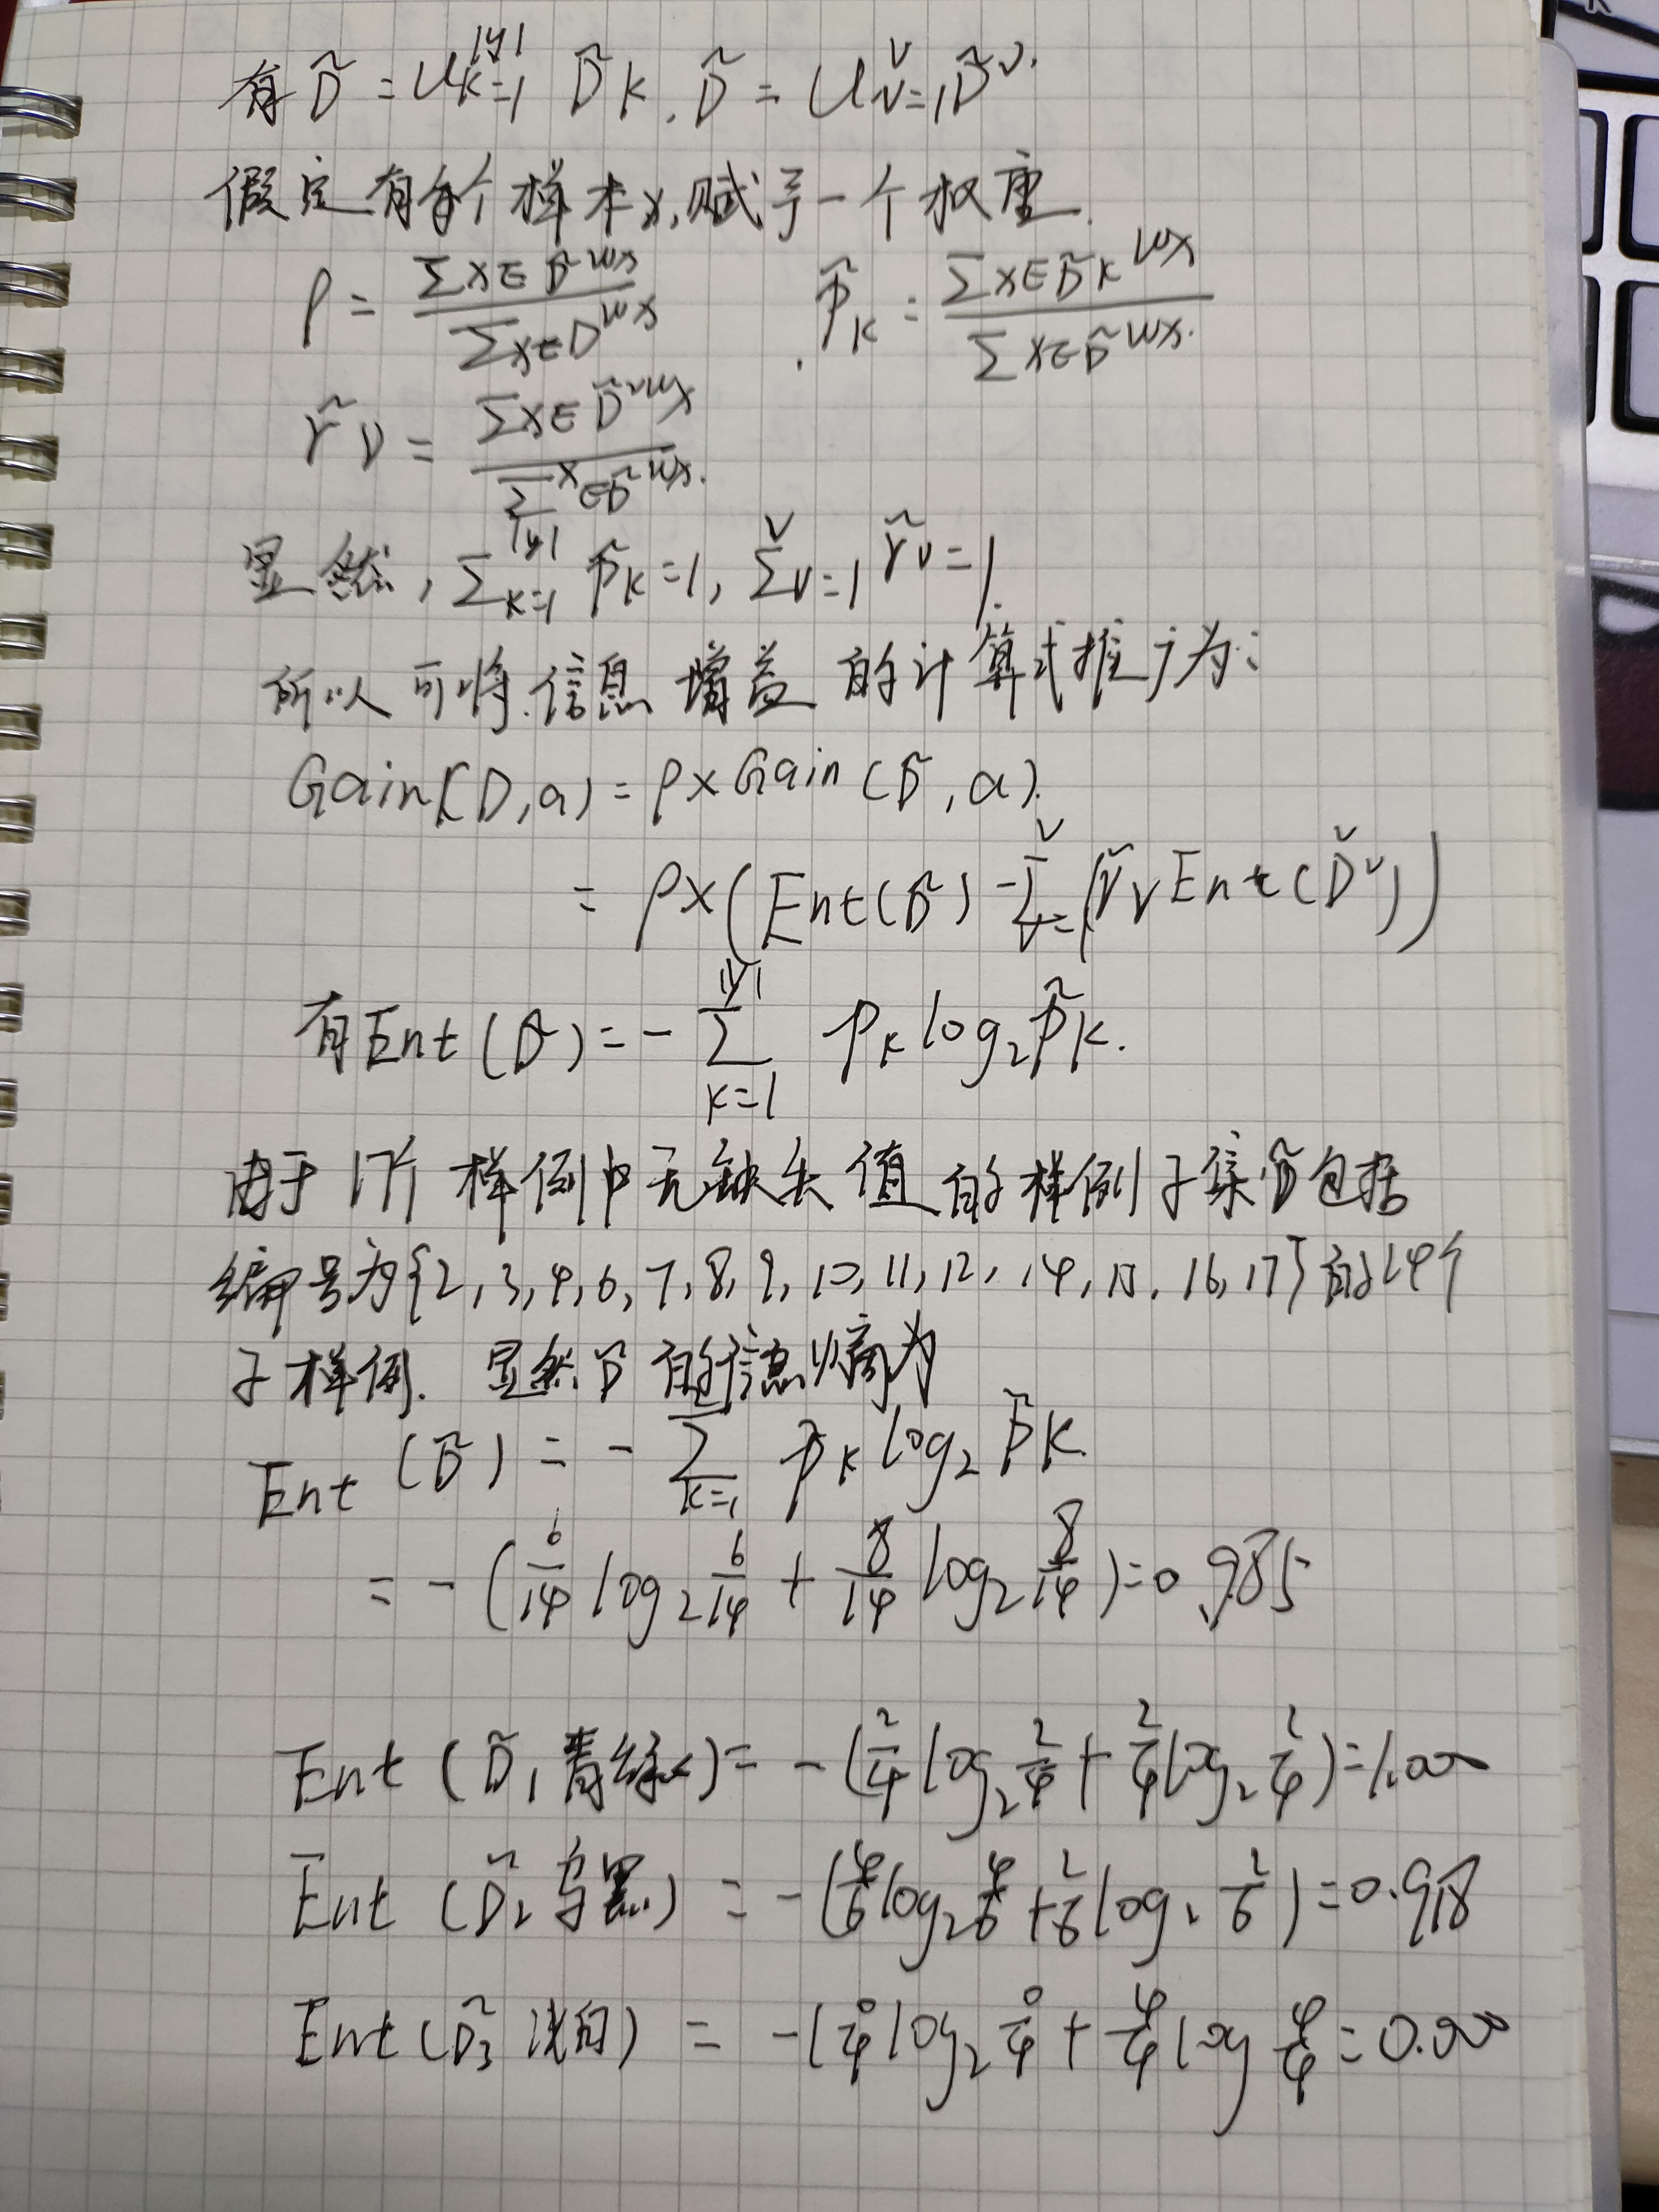 有 D̃ = ∪_{k=1}^{|y|} D̃k. D̃ = ∪_{v=1}^{V} D̃^v.
假定有每个样本x,赋予一个权重.
ρ = Σx∈D̃ wx / Σx∈D wx . p̃k = Σx∈D̃k wx / Σx∈D̃ wx.
r̃v = Σx∈D̃^v wx / Σx∈D̃ wx.
显然, Σ_{k=1}^{|y|} p̃k=1, Σ_{v=1}^{V} r̃v=1.
所以可将信息增益的计算式推广为:
Gain(D,a) = ρ×Gain(D̃,a).
= ρ×(Ent(D̃) - Σ_{v=1}^{V} (r̃v Ent(D̃^v))
有Ent(D̃) = - Σ_{k=1}^{|y|} pk log₂ p̃k.
由于17个样例中无缺失值的样例子集D̃包括
编号为{2,3,4,6,7,8,9,10,11,12,14,15,16,17}的14个
子样例. 显然D̃的信息熵为
Ent(D̃) = - Σ_{k=1} p̃k log₂ p̃k.
= -(6/14 log₂ 6/14 + 8/14 log₂ 8/14) = 0.985
Ent(D̃1 青绿) = -(2/4 log₂ 2/4 + 2/4 log₂ 2/4) = 1.00
Ent(D̃2 乌黑) = -(4/6 log₂ 4/6 + 2/6 log₂ 2/6) = 0.918
Ent(D̃3 浅白) = -(0/4 log₂ 0/4 + 4/4 log 4/4 = 0.000